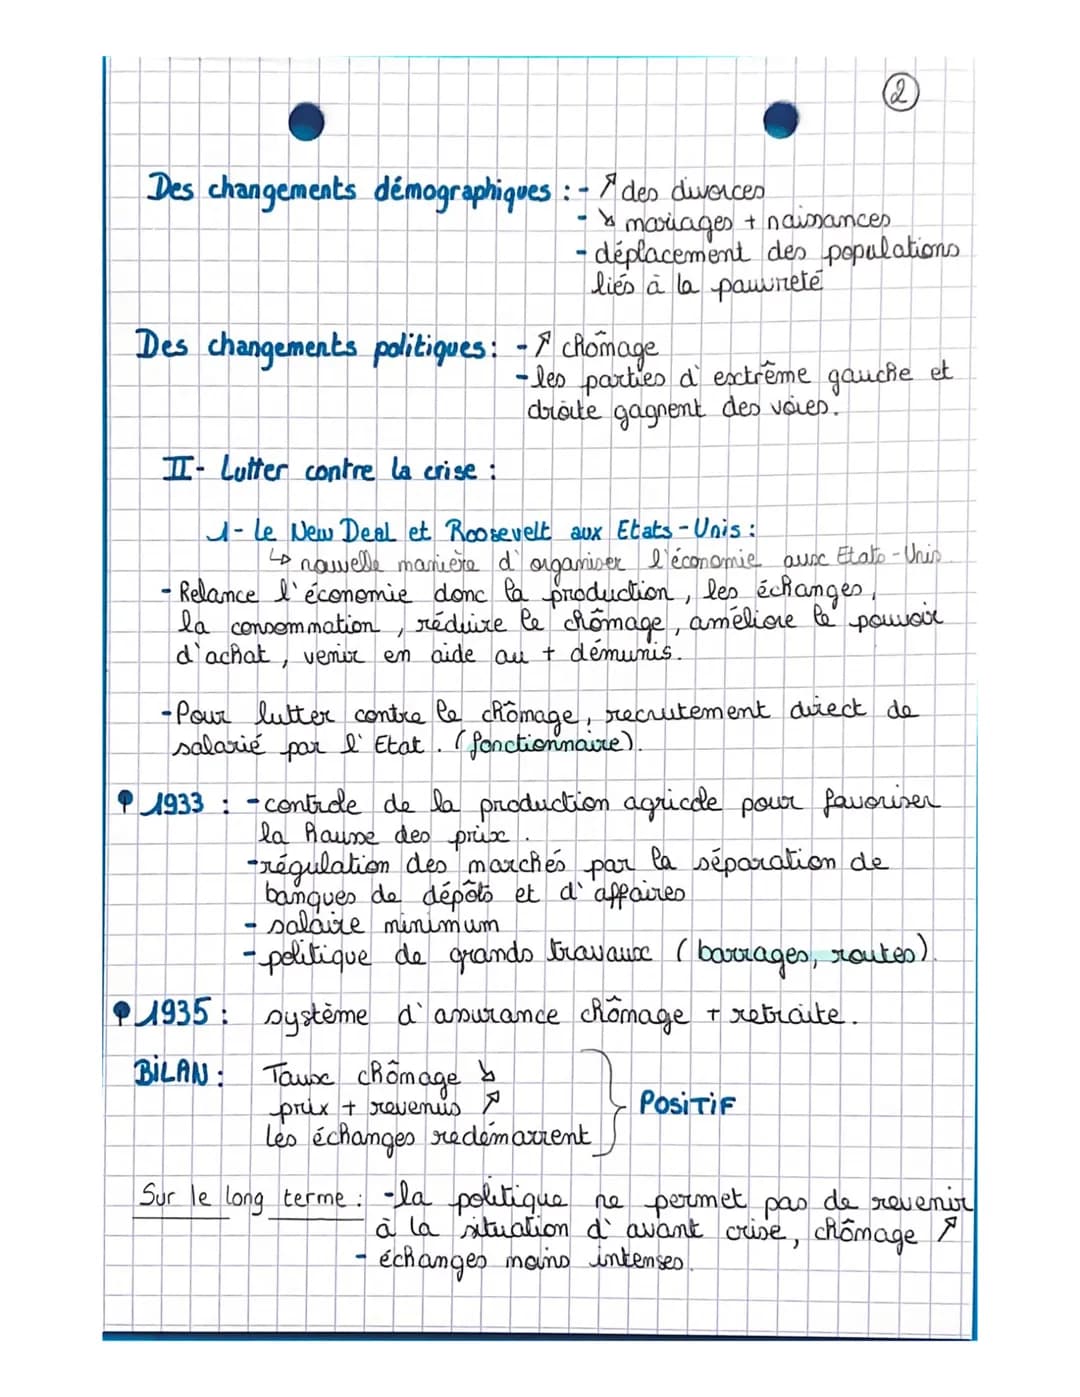 2
Des changements démographiques : - ↗ des divorces
- ↘ mariages + naissances
- déplacement des populations
liés à la pauvreté
Des changements politiques : - ↗ chômage
- les parties d'extrême gauche et
droite gagnent des voies.
II- Lutter contre la crise :
1- Le New Deal et Roosevelt aux Etats-Unis :
↳ nouvelle manière d'organiser l'économie aux Etats-Unis.
- Relance l'économie donc la production, les échanges,
la consommation, réduire le chômage, améliore le pouvoir
d'achat, venir en aide au + démunis.
- Pour lutter contre le chômage, recrutement direct de
salarié par l'Etat. (fonctionnaire).
1933 : - contrôle de la production agricole pour favoriser
la hausse des prix.
- régulation des marchés par la séparation de
banques de dépôts et d'affaires
- salaire minimum
- politique de grands travaux (barrages, routes).
1935 : système d'assurance chômage + retraite.
BILAN : Taux chômage ↘
prix + revenus ↗
les échanges redémarrent
POSITIF
Sur le long terme : - la politique ne permet pas de revenir
à la situation d'avant crise, chômage ↗
- échanges moins intenses.